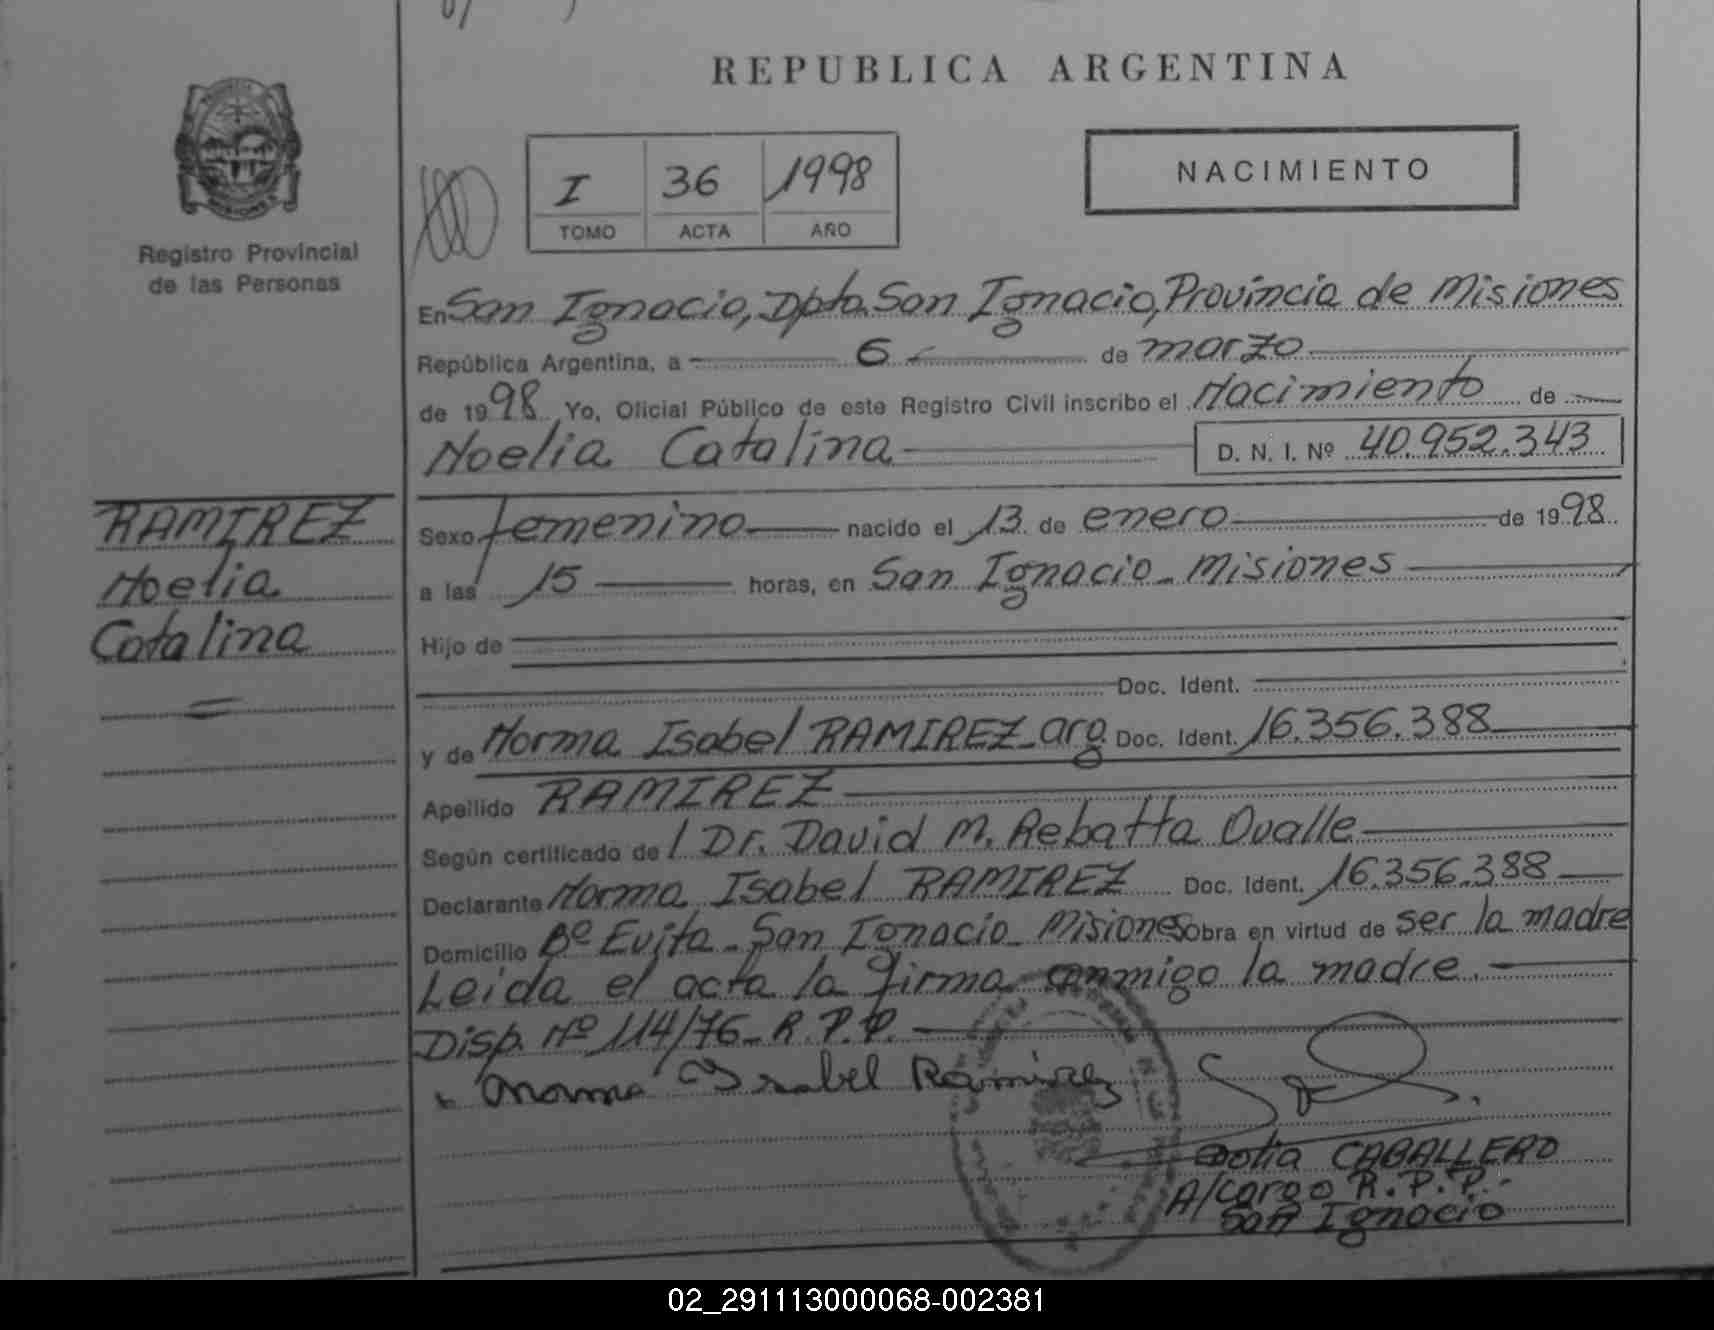 REPUBLICA ARGENTINA
NACIMIENTO
I 36 1998
TOMO ACTA AÑO
MISIONES
Registro Provincial
de las Personas
En San Ignacio, Dpto. San Ignacio, Provincia de Misiones
República Argentina, a 6 de marzo
de 1998 Yo, Oficial Público de este Registro Civil inscribo el Nacimiento de
Noelia Catalina D. N. I. Nº 40.952.343
RAMIREZ
Noelia
Catalina
Sexo femenino nacido el 13 de enero de 1998
a las 15 horas, en San Ignacio - Misiones
Hijo de
Doc. Ident.
y de Norma Isabel RAMIREZ - arg. Doc. Ident. 16.356.388
Apellido RAMIREZ
Según certificado de l Dr. David M. Rebatta Ovalle
Declarante Norma Isabel RAMIREZ Doc. Ident. 16.356.388
Domicilio Bº Evita - San Ignacio - Misiones obra en virtud de ser la madre
Leida el acta la firma conmigo la madre.
Disp. Nº 114/76 - R.P.P.
Norma Isabel Ramirez
CABALLERO
A/cargo R.P.P.
San Ignacio
02_291113000068-002381